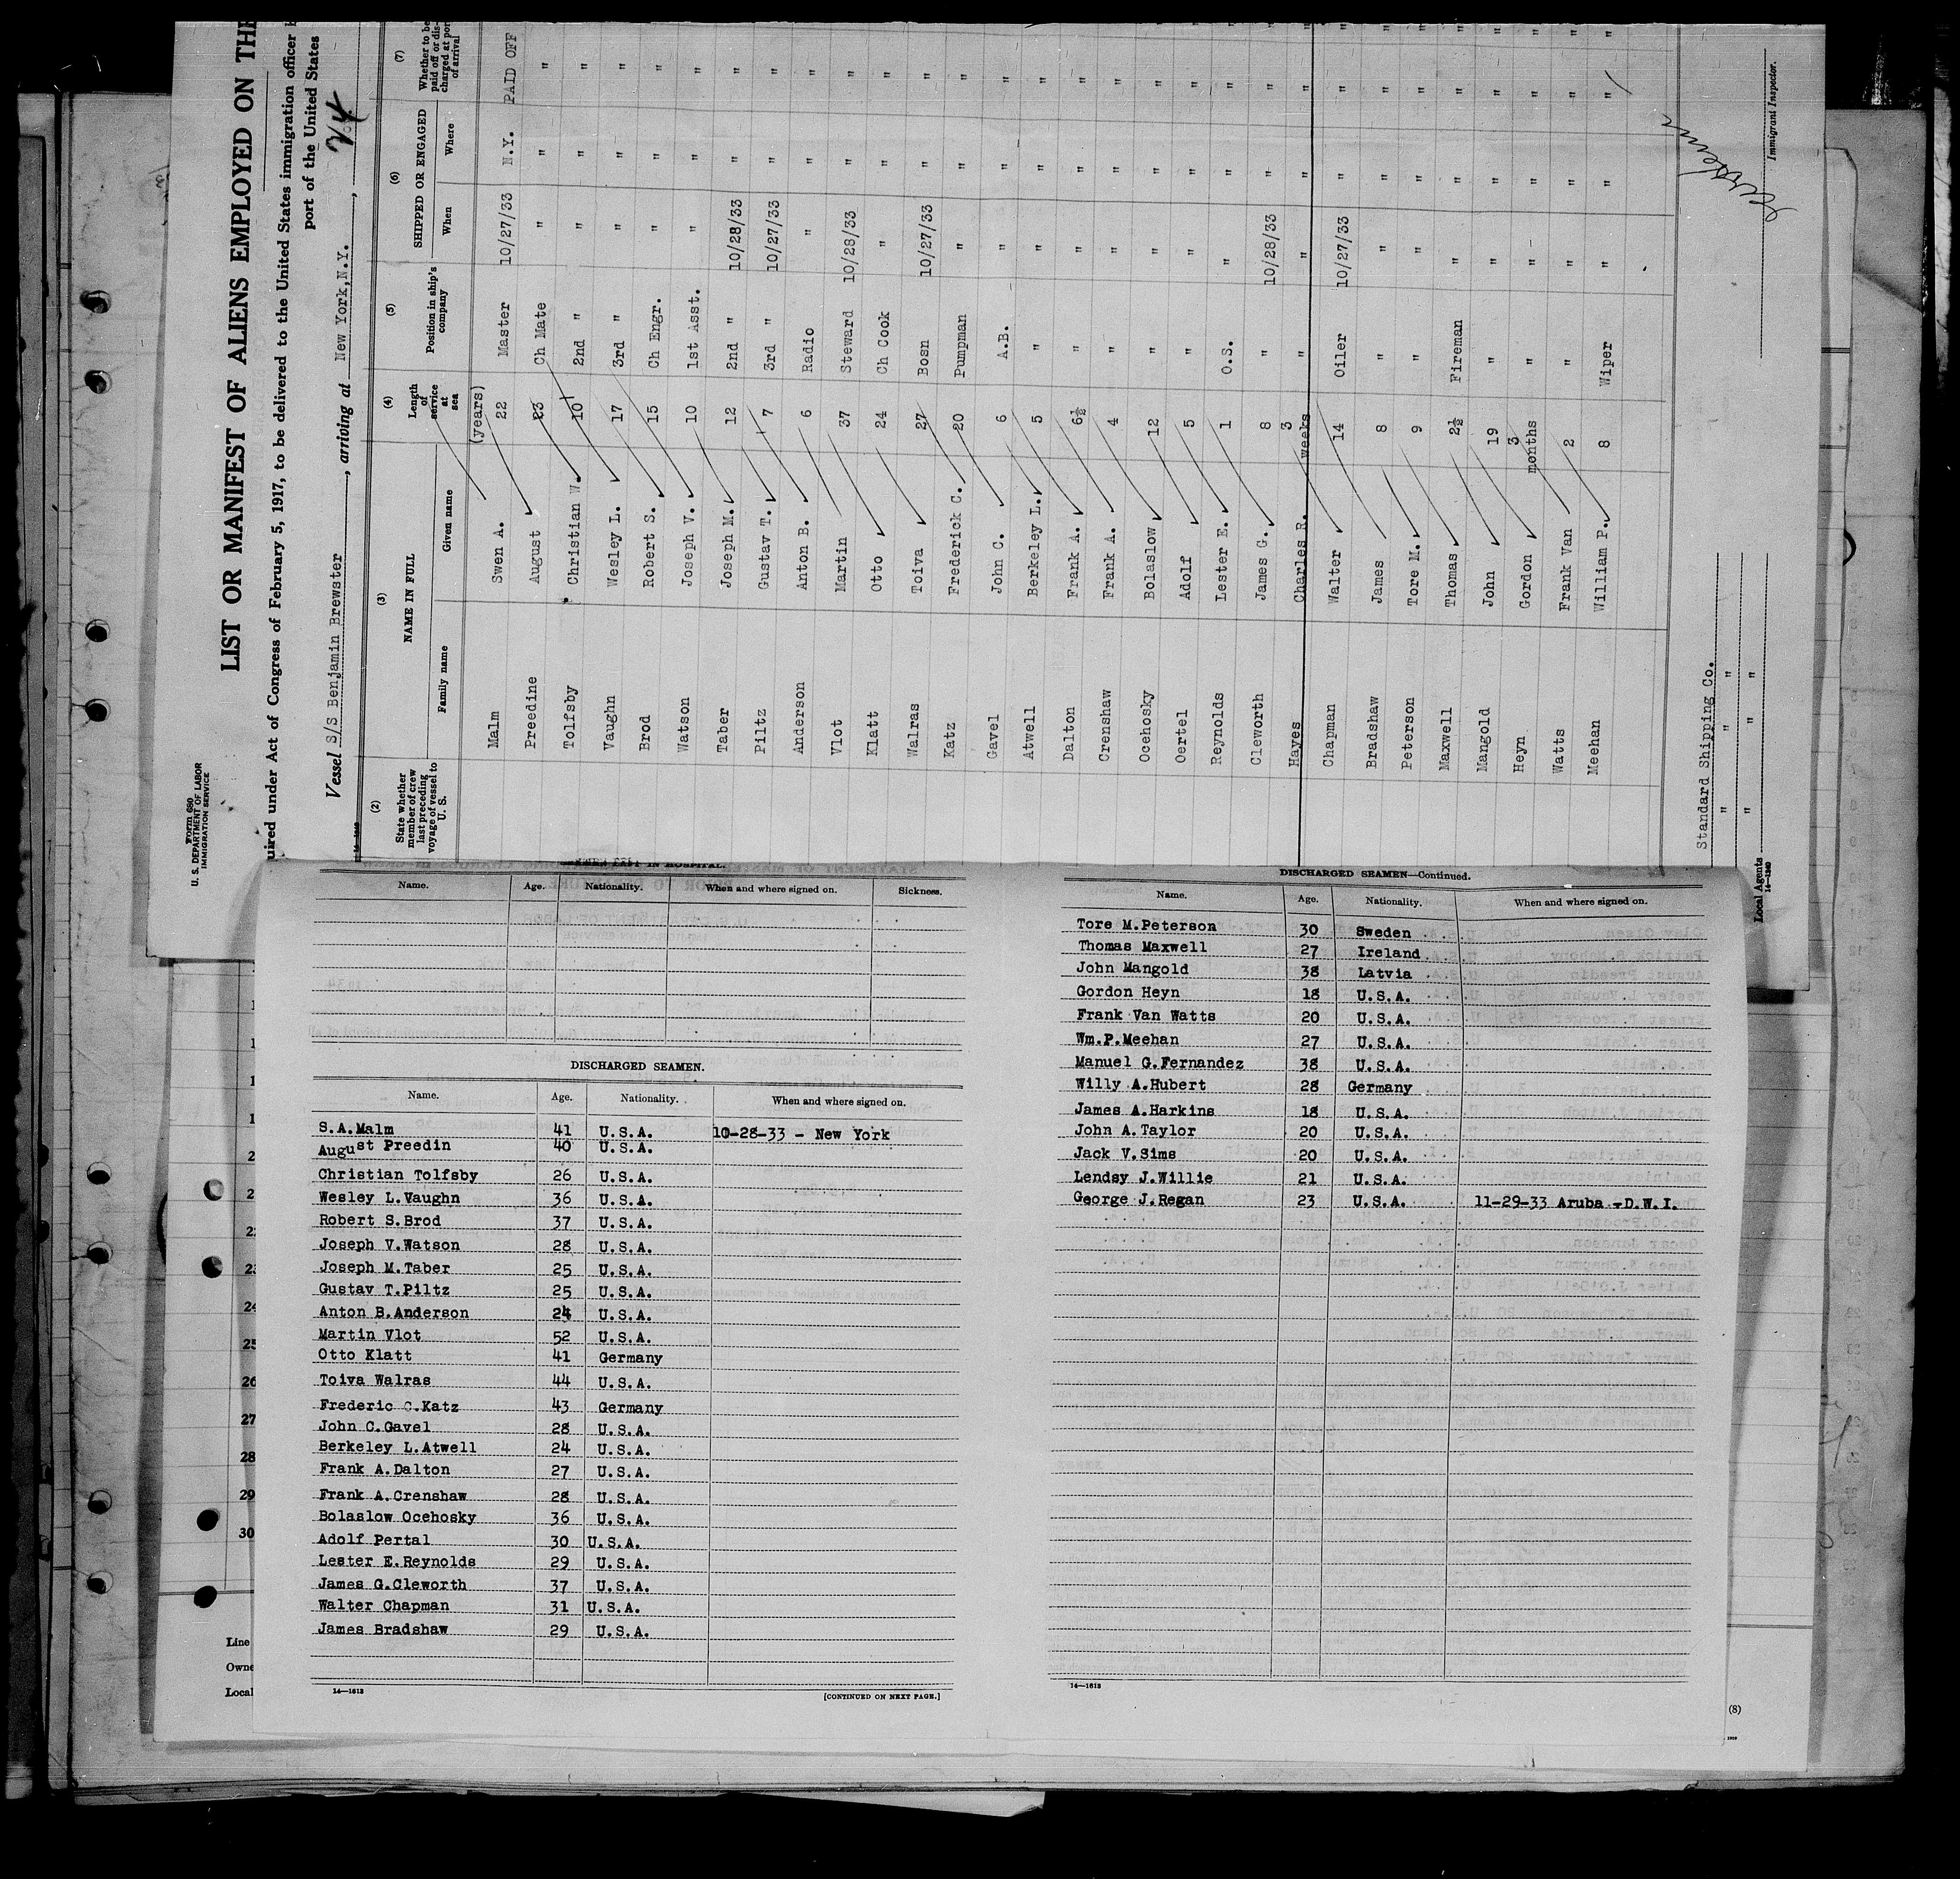 Form 680
U. S. DEPARTMENT OF LABOR
IMMIGRATION SERVICE
LIST OR MANIFEST OF ALIENS EMPLOYED ON THE
uired under Act of Congress of February 5, 1917, to be delivered to the United States immigration officer
port of the United States
Vessel S/S Benjamin Brewster, arriving at New York, N.Y.,
(2) (3) (4) (5) (6) (7)
State whether member of crew last preceding voyage of vessel to U. S. NAME IN FULL Length of service at sea Position in ship's company SHIPPED OR ENGAGED Whether to be paid off or discharged at port of arrival
Family name Given name When Where
(years)
Malm Swen A. 22 Master 10/27/33 N.Y. PAID OFF
Preedine August 23 Ch Mate " " "
Tolfsby Christian W. 10 2nd " " " "
Vaughn Wesley L. 17 3rd " " " "
Brod Robert S. 15 Ch Engr. " " "
Watson Joseph V. 10 1st Asst. " " "
Taber Joseph M. 12 2nd " 10/28/33 " "
Piltz Gustav T. 7 3rd " 10/27/33 " "
Anderson Anton B. 6 Radio " " "
Vlot Martin 37 Steward 10/28/33 " "
Klatt Otto 24 Ch Cook " " "
Walras Toiva 27 Bosn 10/27/33 " "
Katz Frederick C. 20 Pumpman " " "
Gavel John C. 6 A.B. " " "
Atwell Berkeley L. 5 " " " "
Dalton Frank A. 6½ " " " "
Crenshaw Frank A. 4 " " " "
Ocehosky Bolaslow 12 " " " "
Oertel Adolf 5 " " " "
Reynolds Lester E. 1 O.S. " " "
Cleworth James G. 8 " 10/28/33 " "
Hayes Charles R. 3 weeks " " " "
Chapman Walter 14 Oiler 10/27/33 " "
Bradshaw James 8 " " " "
Peterson Tore M. 9 " " " "
Maxwell Thomas 2½ Fireman " " "
Mangold John 19 " " " "
Heyn Gordon 3 months " " " "
Watts Frank Van 2 " " " "
Meehan William P. 8 Wiper " " "
Standard Shipping Co.
" " " "
Local Agents " " "
14-1240
Immigrant Inspector.
Name. Age. Nationality. When and where signed on. Sickness.
DISCHARGED SEAMEN.
Name. Age. Nationality. When and where signed on.
S.A.Malm 41 U.S.A. 10-28-33 - New York
August Preedin 40 U.S.A.
Christian Tolfsby 26 U.S.A.
Wesley L.Vaughn 36 U.S.A.
Robert S.Brod 37 U.S.A.
Joseph V.Watson 28 U.S.A.
Joseph M.Taber 25 U.S.A.
Gustav T.Piltz 25 U.S.A.
Anton B.Anderson 24 U.S.A.
Martin Vlot 52 U.S.A.
Otto Klatt 41 Germany
Toiva Walras 44 U.S.A.
Frederic C.Katz 43 Germany
John C.Gavel 28 U.S.A.
Berkeley L.Atwell 24 U.S.A.
Frank A.Dalton 27 U.S.A.
Frank A.Crenshaw 28 U.S.A.
Bolaslow Ocehosky 36 U.S.A.
Adolf Pertal 30 U.S.A.
Lester E.Reynolds 29 U.S.A.
James G.Cleworth 37 U.S.A.
Walter Chapman 31 U.S.A.
James Bradshaw 29 U.S.A.
14—1613
[CONTINUED ON NEXT PAGE.]
DISCHARGED SEAMEN—Continued.
Name. Age. Nationality. When and where signed on.
Tore M.Peterson 30 Sweden
Thomas Maxwell 27 Ireland
John Mangold 38 Latvia
Gordon Heyn 18 U.S.A.
Frank Van Watts 20 U.S.A.
Wm.P.Meehan 27 U.S.A.
Manuel G.Fernandez 38 U.S.A.
Willy A.Hubert 28 Germany
James A.Harkins 18 U.S.A.
John A.Taylor 20 U.S.A.
Jack V.Sims 20 U.S.A.
Lendsy J.Willie 21 U.S.A.
George J.Regan 23 U.S.A. 11-29-33 Aruba -D.W.I.
14—1613
24
25
26
27
28
29
30
Line
Owne
Local
(8)